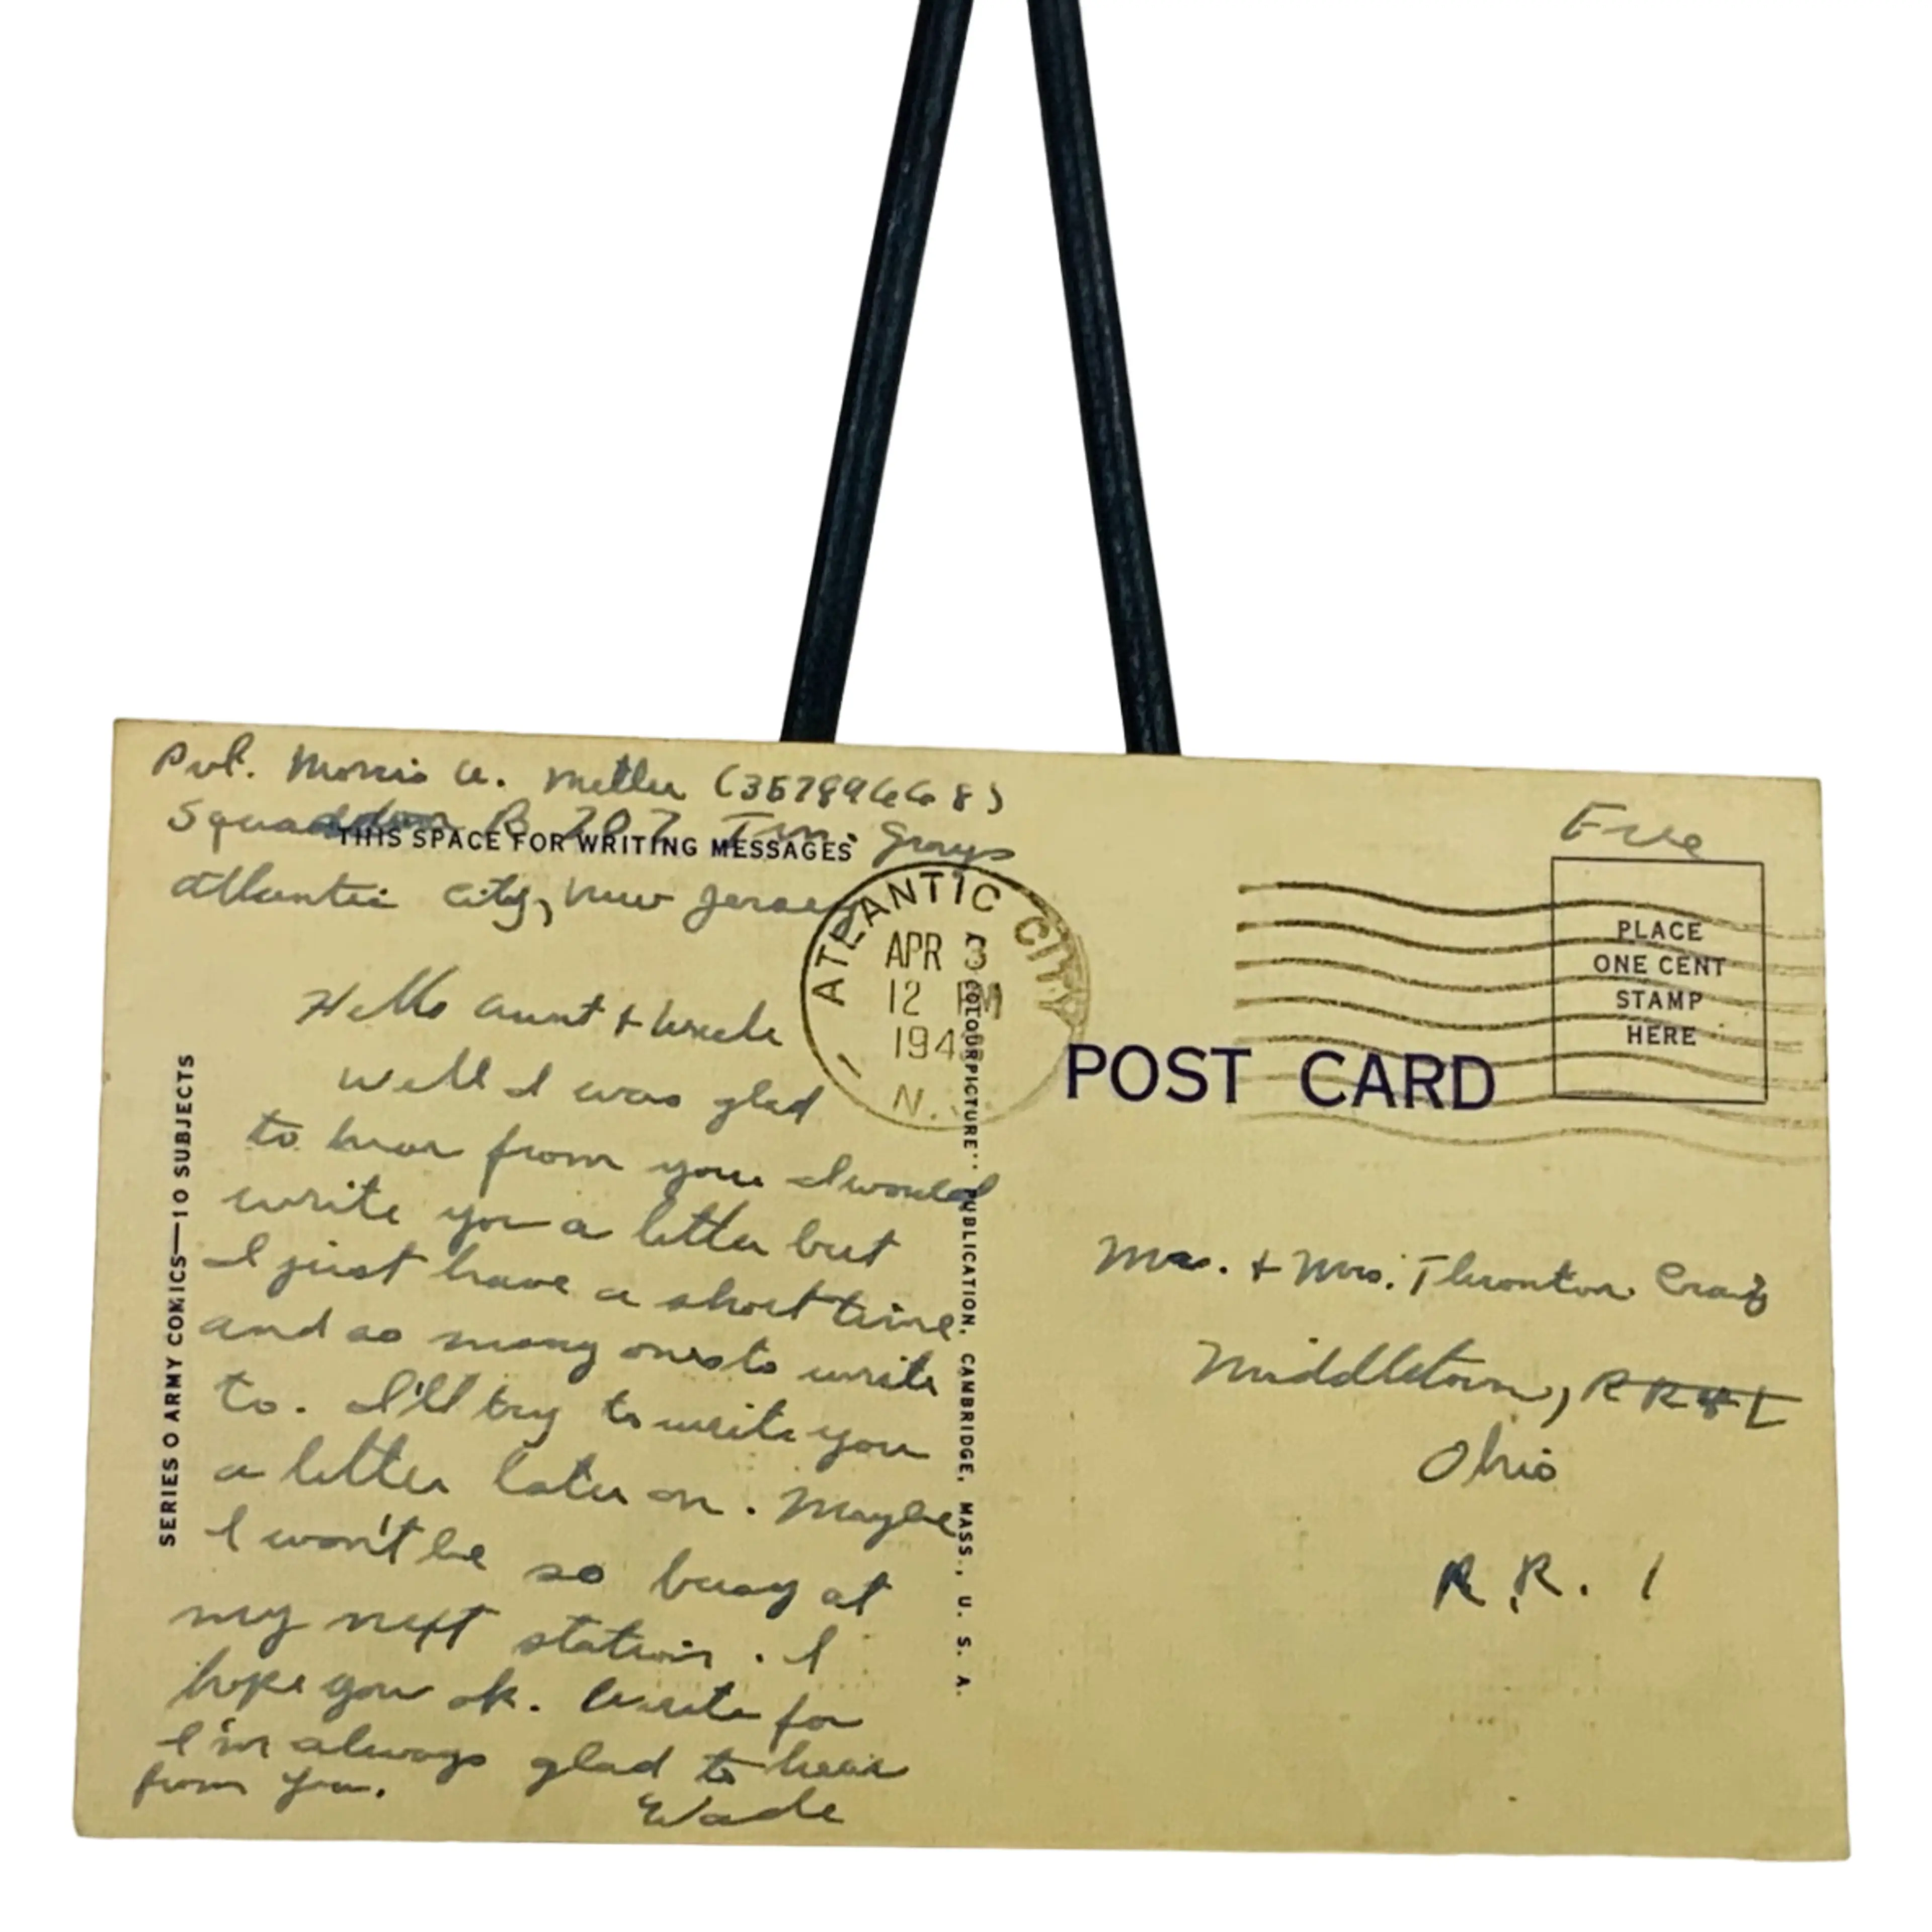 Pvt. Morris W. Metler (35789668)
Squadron B 707 Grays
Atlantic City, New Jersey
THIS SPACE FOR WRITING MESSAGES
Hello Aunt + Uncle
Well I was glad
to hear from you I would
write you a letter but
I just have a short time
and so many ones to write
to. I'll try to write you
a letter later on. Maybe
I won't be so busy at
my next station. I
hope you ok. Write for
I'm always glad to hear
from you.
Wade
SERIES O ARMY COMICS—10 SUBJECTS
"COLOURPICTURE" PUBLICATION, CAMBRIDGE, MASS., U. S. A.
ATLANTIC CITY
APR 3
12 PM
194
N.
POST CARD
Free
PLACE
ONE CENT
STAMP
HERE
Mr. + Mrs. Thronton Craig
Middletown, R R # 1
Ohio
R.R. 1